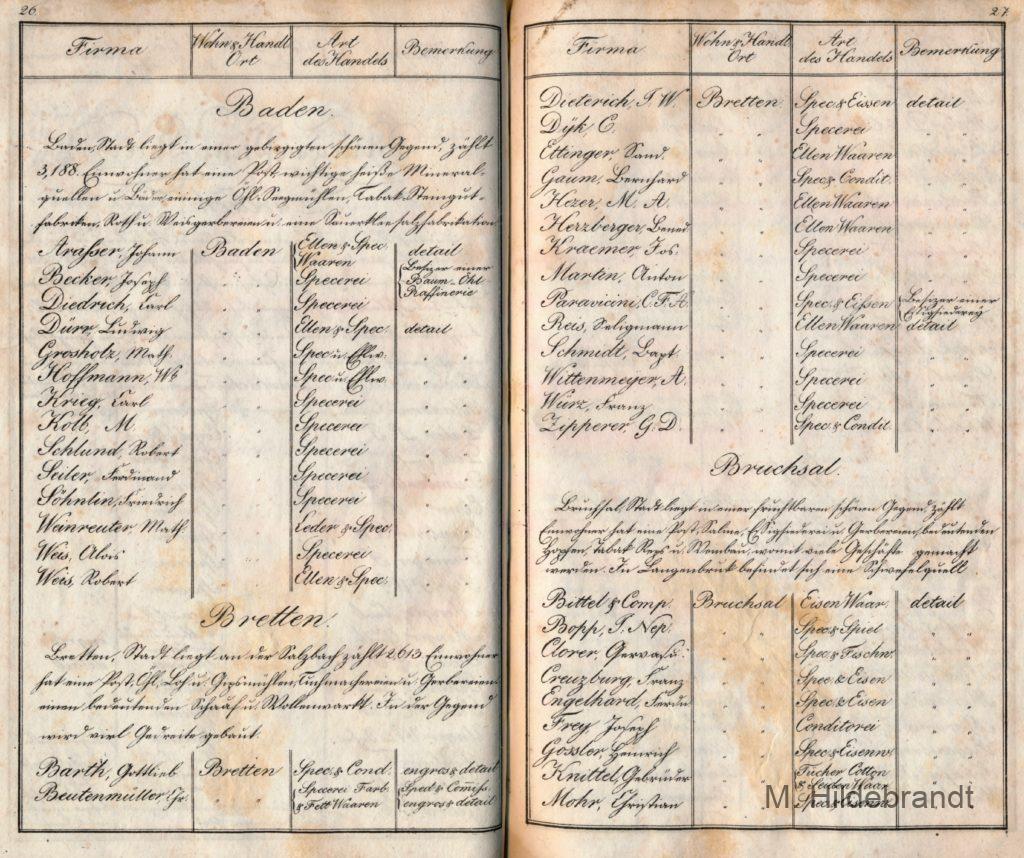 26.
Firma Wohn & Handl Ort Art des Handels Bemerkung
Baden.
Baden, Stadt liegt in einer gebirgigten schönen Gegend, zählt
3,188. Einwohner hat eine Post, wichtige heiße Mineral-
quellen u Bäder, einige Öhl- Seegmühlen, Tabak Steingut-
fabriken, Roth u. Weisgerbereien u. eine Sauerkleesalzfabrikation
Arasser, Johann Baden Ellen & Spec. Waaren detail
Becker, Joseph " Specerei Besizer einer Baum-Öhl Raffinerie
Diedrich, Carl " Specerei
Dürr, Ludwig " Ellen & Spec. detail
Grosholz, Math. " Spec u. Ellw. "
Hoffmann, Wb " Spec u. Ellw. "
Krieg, Carl " Specerei "
Kott, M. " Specerei "
Schlund, Robert " Specerei "
Seiler, Ferdinand " Specerei "
Söhnlin, Friedrich " Specerei "
Weinreuter, Math. " Leder & Spec. "
Weis, Alois " Specerei "
Weis, Robert " Ellen & Spec. "
Bretten.
Bretten, Stadt liegt an der Salzbach zählt 2,613 Einwohner
hat eine Post, Öhl, Loh u. Gypsmühlen, Tuchmachereien u. Gerbereien
einen bedeutenden Schaaf u. Wollenmarkt. In der Gegend
wird viel Getreite gebaut.
Barth, Gottlieb Bretten Spec. & Cond. engros & detail
Beutenmüller, Chr. " Specerei Farb. & Fett Waaren Sped & Comiss. engros & detail
27.
Firma Wohn & Handl Ort Art des Handels Bemerkung
Dieterich, J. W. Bretten Spec & Eissen detail
Dÿk C. " Specerei "
Ettinger, Sand. " Ellen Waaren "
Gaum, Bernhard " Spec & Condit. "
Hezer, M. A. " Ellen Waaren "
Herzberger, Bened " Ellen Waaren "
Kraemer, Jos. " Specerei "
Marten, Anton " Specerei "
Paravicini, C. F. A. " Spec. & Eissen Besizer einer Essighsiederey
Reis, Seligmann " Ellen Waaren detail
Schmidt, Bapt. " Specerei "
Wittenmeyer, A. " Specerei "
Würz, Franz " Specerei "
Zipperer, G. D. " Spec. & Condit. "
Bruchsal.
Bruchsal, Stadt liegt in einer fruchtbaren schönen Gegend, zählt
Einwohner hat eine Post, Saline, Essighsiederei u. Gerbereien, bedeutenden
Hopfen, Tabak Reps u. Weinbau, womit viele Geschäfte gemacht
werden. In Langenbruk befindet sich eine Schwefelquell
Bittel & Comp. Bruchsal Eisen Waar. detail
Bopp, J. Nep. " Spec. & Spiel "
Clorer, Gervass: " Spec. & Tuchw. "
Creuzburg, Franz " Spec. & Eisen "
Engelhard, Ferdn. " Spec. & Eisen "
Frey Joseph " Conditorei "
Gossler, Heinrich " Spec & Eisenw. "
Knittel, Gebrüder " Tücher Cotton & Seiden Waar. "
Mohr, Christian "
M. Hildebrandt